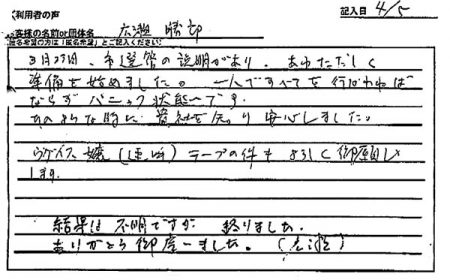 利用者の声
記入日 4/5
客様の名前or団体名 広瀬 勝郎
匿名希望の方は「匿名希望」とご記入ください
3月27日、市選管の説明があり、あわただしく
準備を始めました。一人ですべてを行わねば
ならずパニック状態です。
そのような時に 貴社を知り安心しました。
ウグイス嬢（ ）テープの件も よろしく御願い
します。
結果は 不明ですが 頑りました。
ありがとう御座いました。